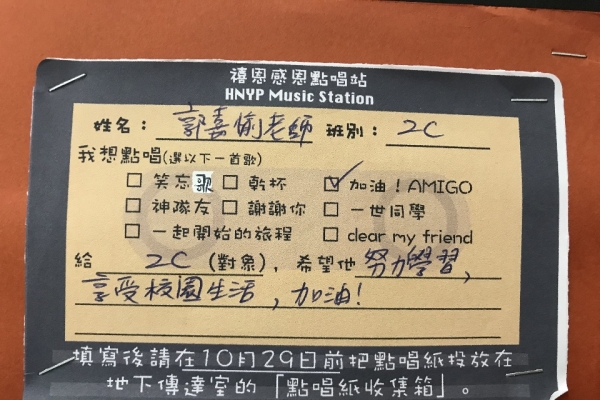 禧恩感恩點唱站
HNYP Music Station
姓名：郭嘉愉老師 班別：2C
我想點唱(選以下一首歌)
□ 笑忘歌 □ 乾杯 ☑ 加油！AMIGO
□ 神隊友 □ 謝謝你 □ 一世同學
□ 一起開始的旅程 □ dear my friend
給 2C (對象)，希望他 努力學習，
享受校園生活，加油！
填寫後請在10月29日前把點唱紙投放在
地下傳達室的「點唱紙收集箱」。